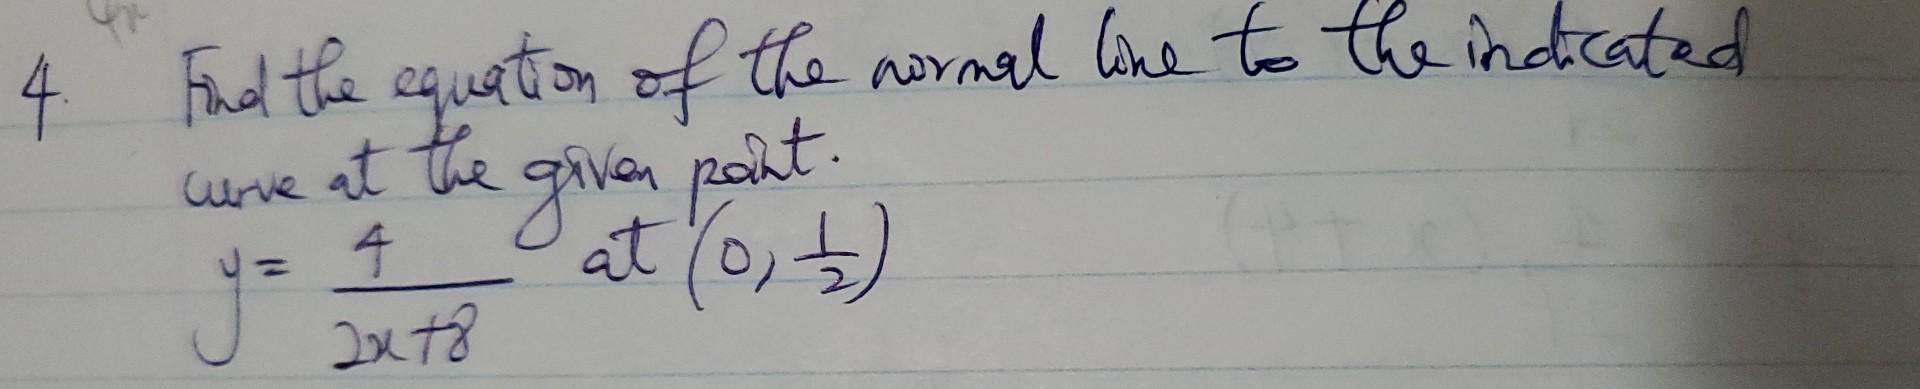 4. Find the equation of the normal line to the indicated
curve at the given point.
y = 4/(2x+8) at (0, 1/2)